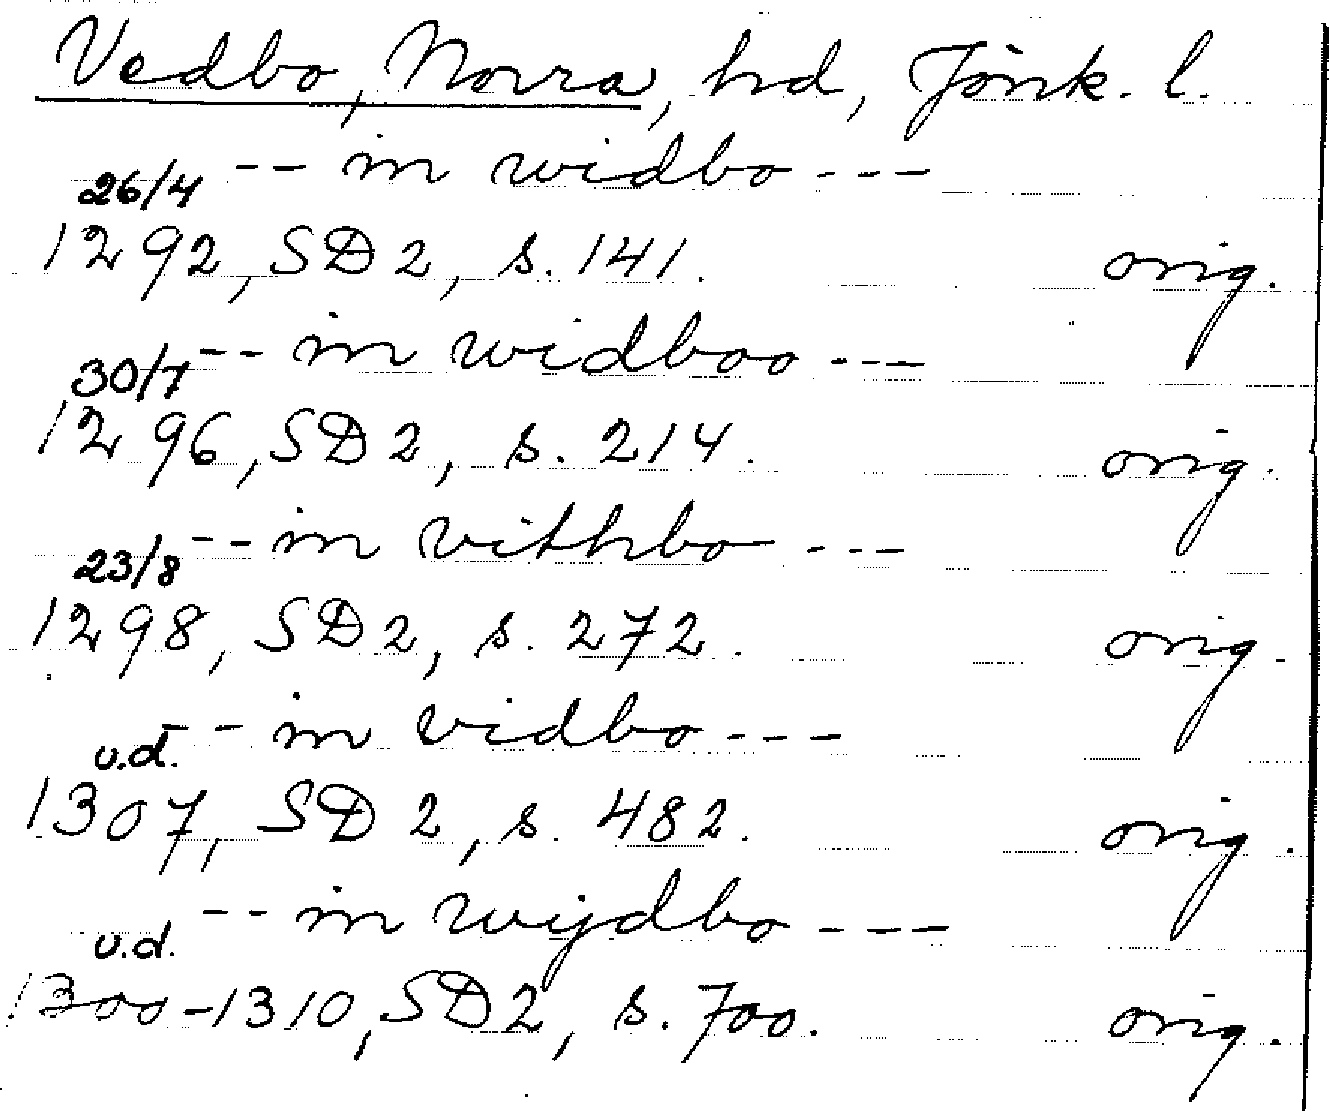 Vedbo, Norra, hd, Jönk. l.
26/4 -- in widbo ---
1292, SD 2, s. 141. orig.
30/7 -- in widboo ---
1296, SD 2, s. 214. orig.
23/8 -- in vithbo ---
1298, SD 2, s. 272. orig.
u.d. -- in vidbo ---
1307, SD 2, s. 482. orig.
u.d. -- in wijdbo ---
1300-1310, SD 2, s. 700. orig.